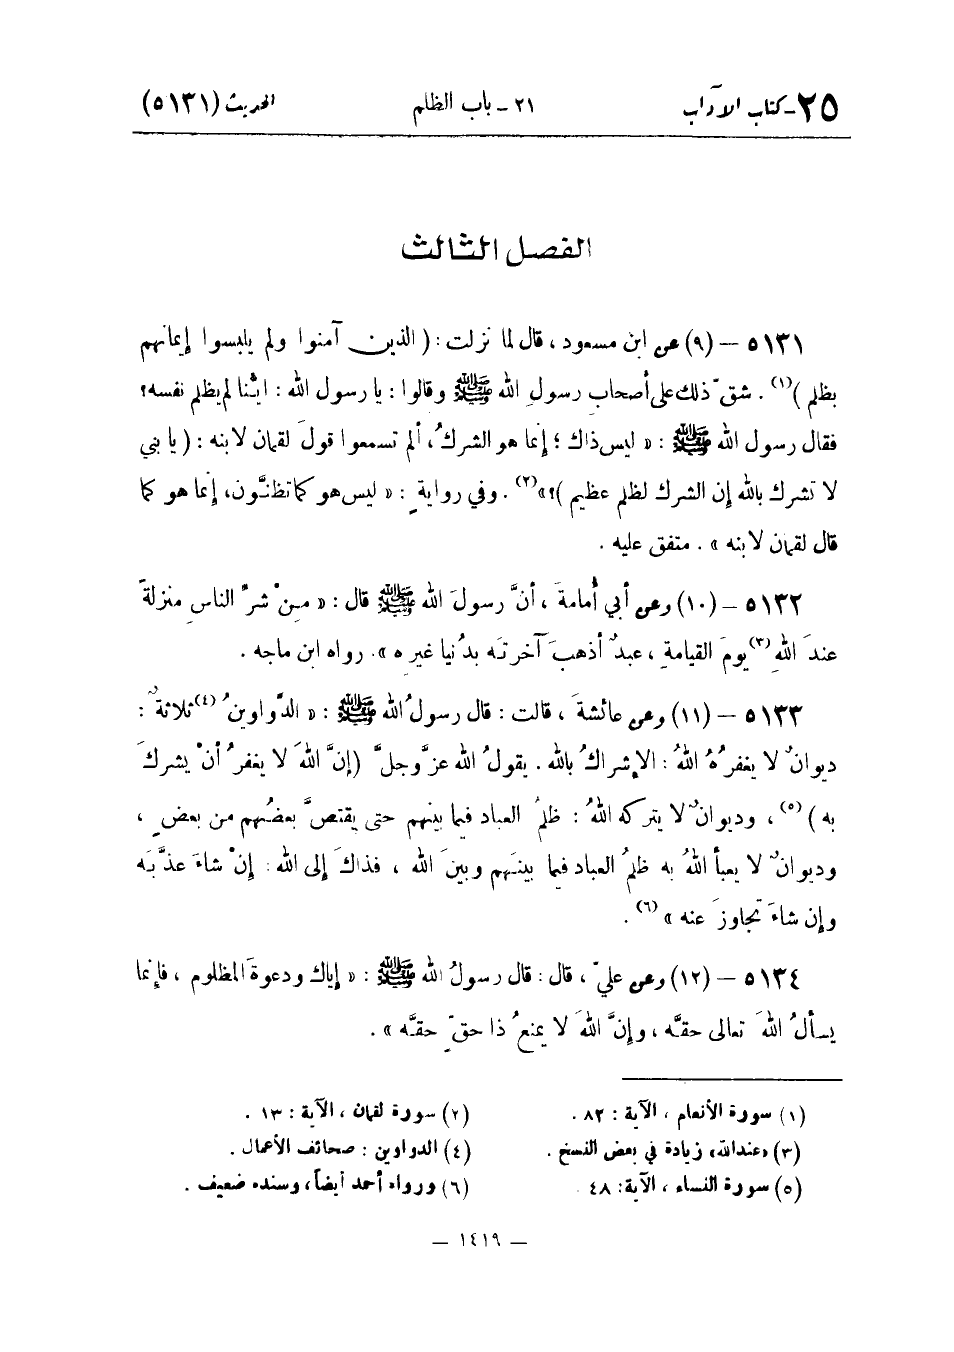 ٢٥ - كتاب الآداب ٢١ - باب الظلم الحديث (٥١٣١)
الفصل الثالث
٥١٣١ – (٩) عن ابن مسعود ، قال لما نزلت : ( الذين آمنوا ولم يلبسوا إيمانهم
بظلم )(١) . شقّ ذلك على أصحابِ رسولِ الله ﷺ وقالوا : يا رسول الله : ايّنا لم يظلم نفسه؟
فقال رسول الله ﷺ : « ليس ذاك ؛ إنما هو الشركُ، ألم تسمعوا قولَ لقمان لابنه : ( يا بني
لا تشرك بالله إن الشرك لظلم عظيم )؟»(٢) . وفي روايةٍ : « ليس هو كما تظنّون، إنما هو كما
قال لقمان لابنه » . متفق عليه .
٥١٣٢ – (١٠) وعن أبي أُمامةَ ، أنَّ رسولَ الله ﷺ قال : « مِنْ شرِّ الناسِ منزلةً
عندَ اللهِ(٣) يومَ القيامةِ ، عبدٌ أذهبَ آخرتَه بدُنيا غيرِه ». رواه ابن ماجه .
٥١٣٣ – (١١) وعن عائشةَ ، قالت : قال رسولُ الله ﷺ : « الدَّواوينُ(٤) ثلاثةٌ :
ديوانٌ لا يغفرُهُ اللهُ : الإشراكُ بالله . يقولُ الله عزَّ وجلَّ (إنَّ اللهَ لا يغفرُ أنْ يشركَ
به )(٥) ، وديوانٌ لا يتركه اللهُ : ظلمُ العباد فيما بينهم حتى يقتصَّ بعضُهم من بعضٍ ،
وديوانٌ لا يعبأُ اللهُ به ظلمُ العباد فيما بينَهم وبينَ الله ، فذاكَ إلى الله : إنْ شاءَ عذَّبَه
وإن شاءَ تجاوزَ عنه »(٦) .
٥١٣٤ – (١٢) وعن عليّ ، قال : قال رسولُ الله ﷺ : « إياك ودعوةَ المظلوم ، فإنما
يسألُ اللهَ تعالى حقَّه ، وإنَّ اللهَ لا يمنعُ ذا حقٍّ حقَّه » .
(١) سورة الأنعام ، الآية : ٨٢ . (٢) سورة لقمان ، الآية : ١٣ .
(٣) «عندالله» زيادة في بعض النسخ . (٤) الدواوين : صحائف الأعمال .
(٥) سورة النساء ، الآية: ٤٨ . (٦) ورواه أحمد أيضاً، وسنده ضعيف .
— ١٤١٩ —